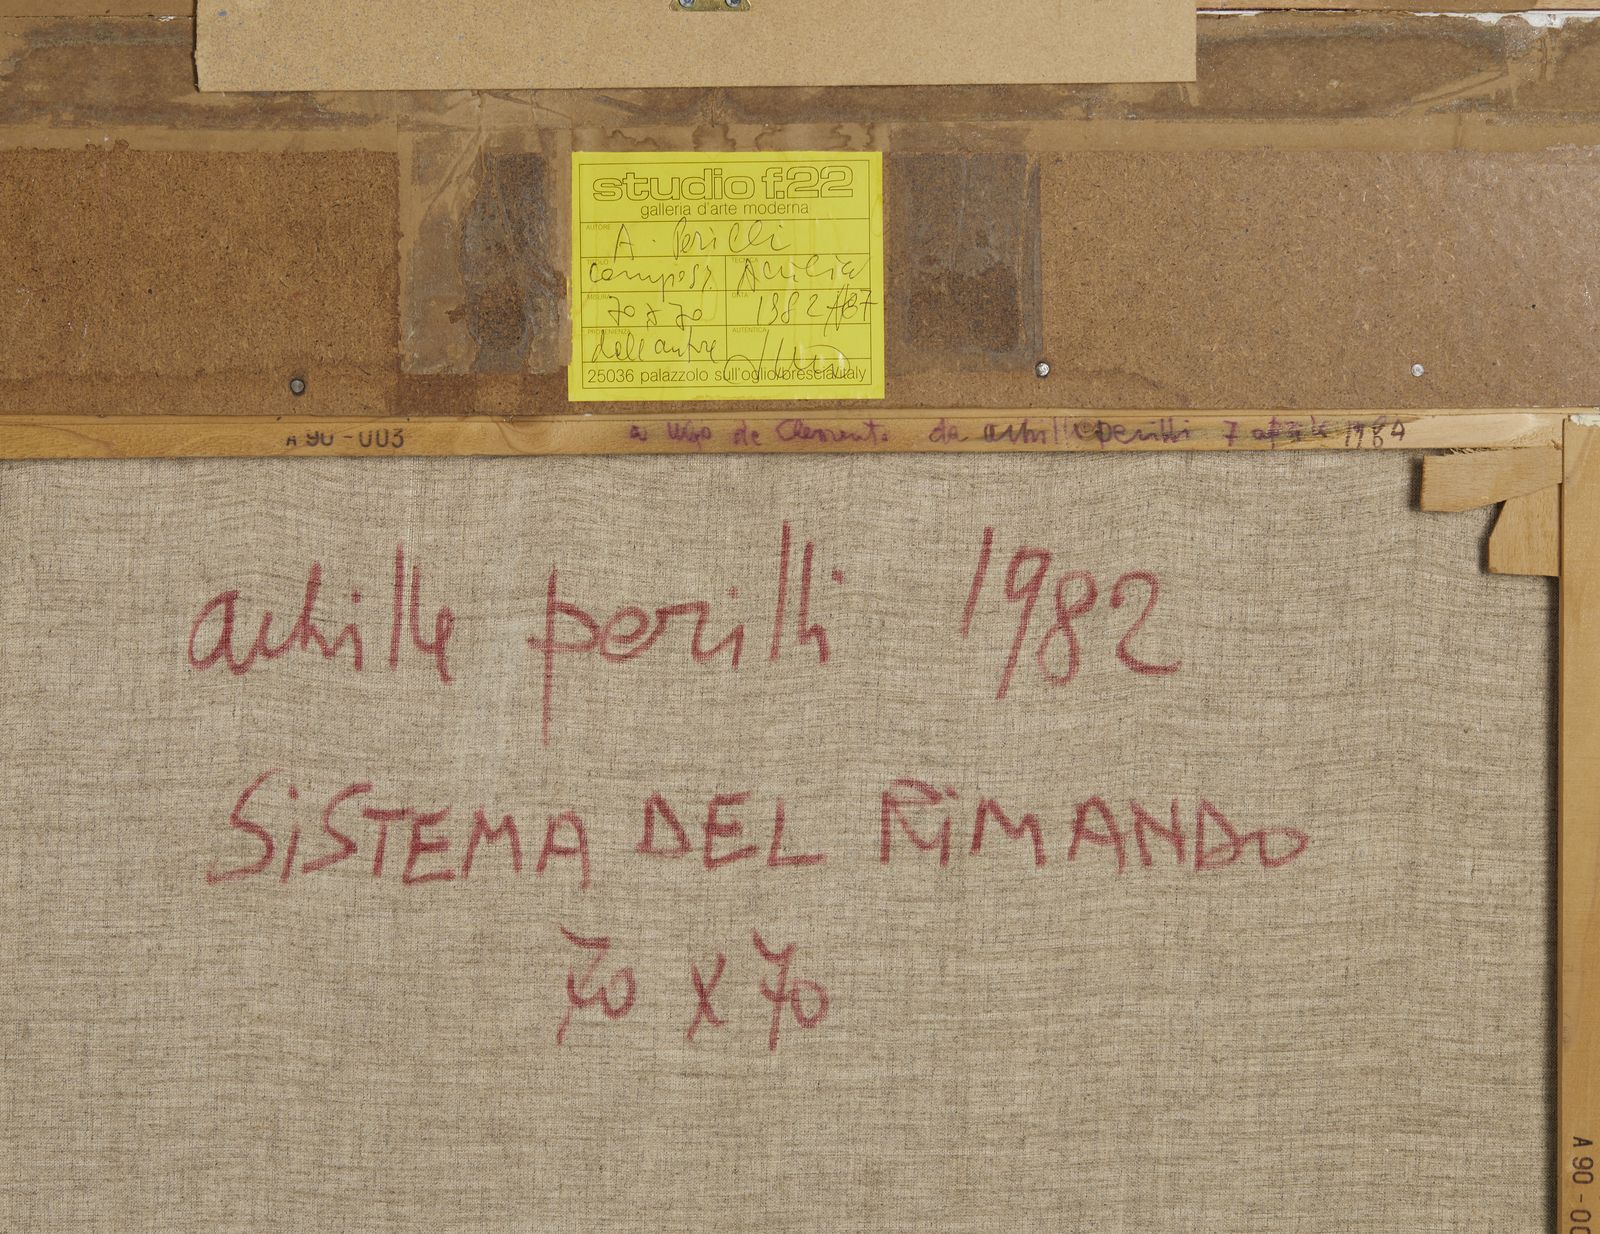 studio f.22
galleria d'arte moderna
AUTORE
A. Perilli
TITOLO TECNICA
composiz. Acrilico
MISURA DATA
70 x 70 1982
PROVENIENZA AUTENTICA
dall'autore
25036 palazzolo sull'oglio/brescia/italy
A 90 - 003
a Ugo de Clemente da achille perilli 7 aprile 1984
achille perilli 1982
SiSTEMA DEL RiMANDO
70 x 70
A 90 - 00